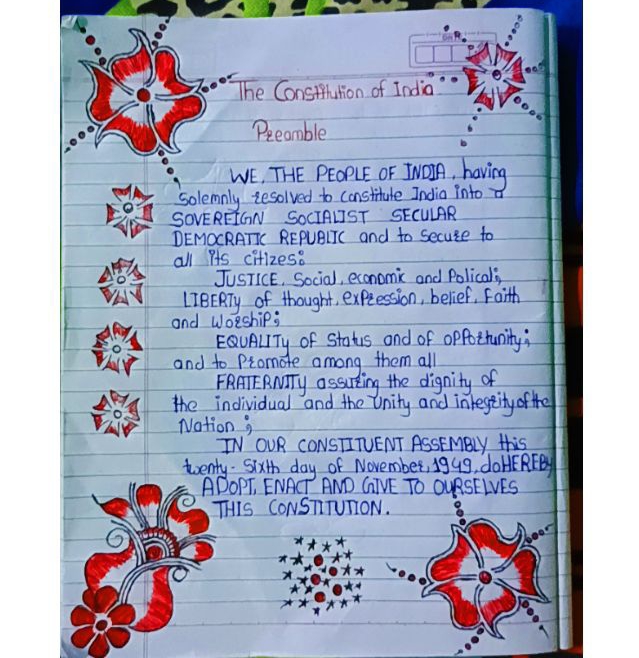 DATE
The Constitution of India
Preamble
WE, THE PEOPLE OF INDIA, having
Solemnly resolved to constitute India into a
SOVEREIGN SOCIALIST SECULAR
DEMOCRATIC REPUBLIC and to secure to
all its citizes:
JUSTICE, Social, economic and Polical;
LIBERTY of thought, expression, belief, Faith
and Worship;
EQUALITY of Status and of opportunity;
and to Promote among them all
FRATERNITY assuring the dignity of
the individual and the Unity and integrity of the
Nation ;
IN OUR CONSTITUENT ASSEMBLY this
twenty-Sixth day of November, 1949, do HEREBY
ADOPT, ENACT AND GIVE TO OURSELVES
THIS CONSTITUTION.